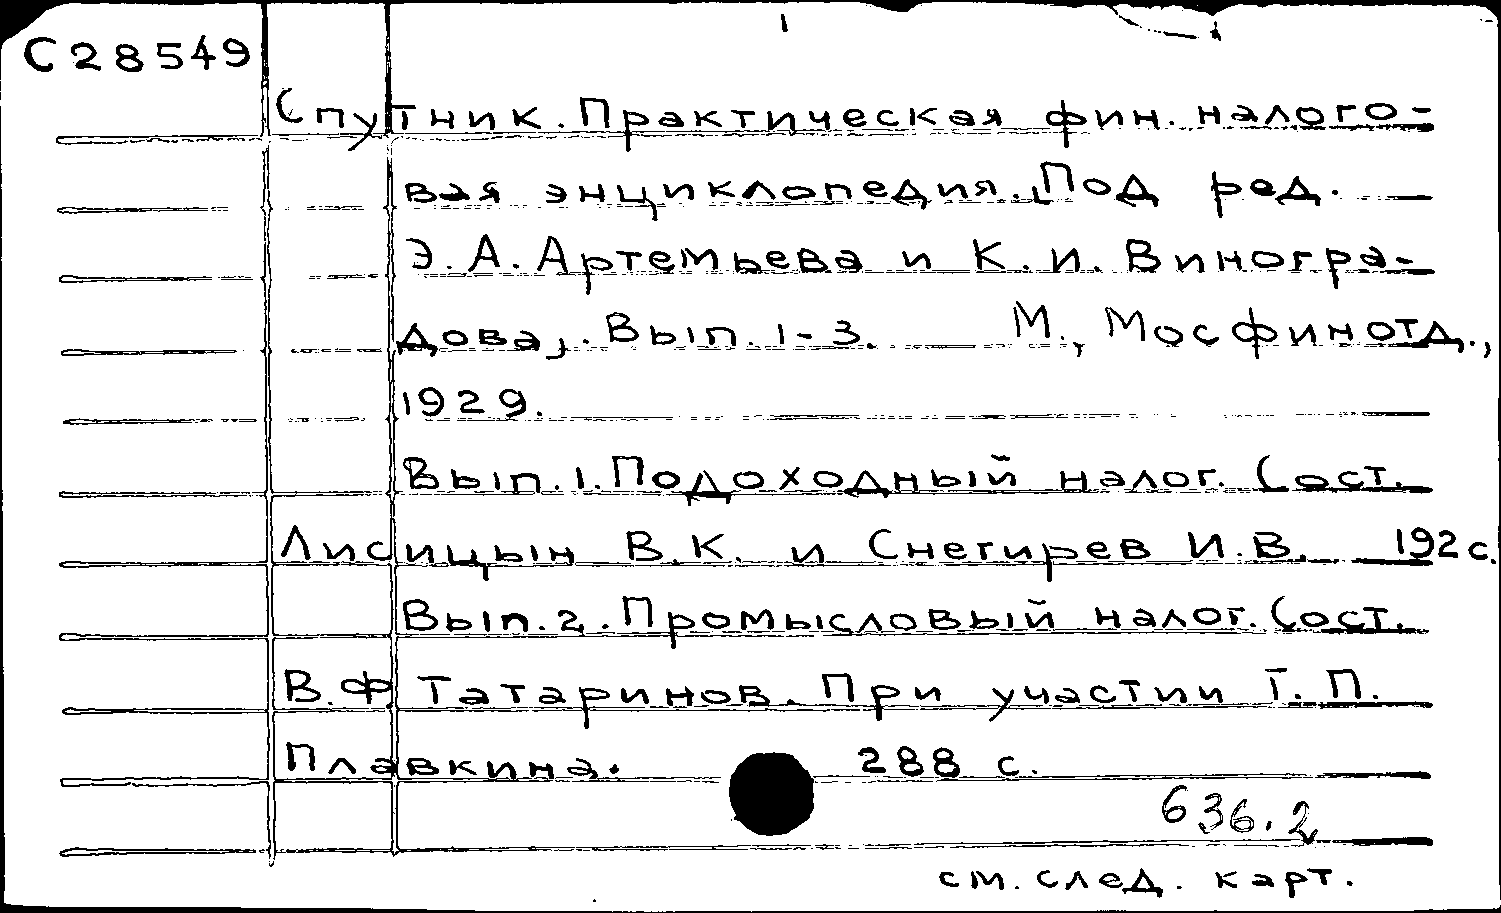 С28549
Спутник. Практическая фин. налого-
вая энциклопедия. Под ред.
Э. А. Артемьева и К. И. Виногра-
дова,. Вып. 1-3. М., Мосфинотд.,
1929.
Вып. 1. Подоходный налог. Сост.
Лисицын В. К. и Снегирев И. В. 192 с.
Вып. 2. Промысловый налог. Сост.
В. Ф Татаринов. При участии Г. П.
Плавкина. 288 с.
636.2
см. след. карт.